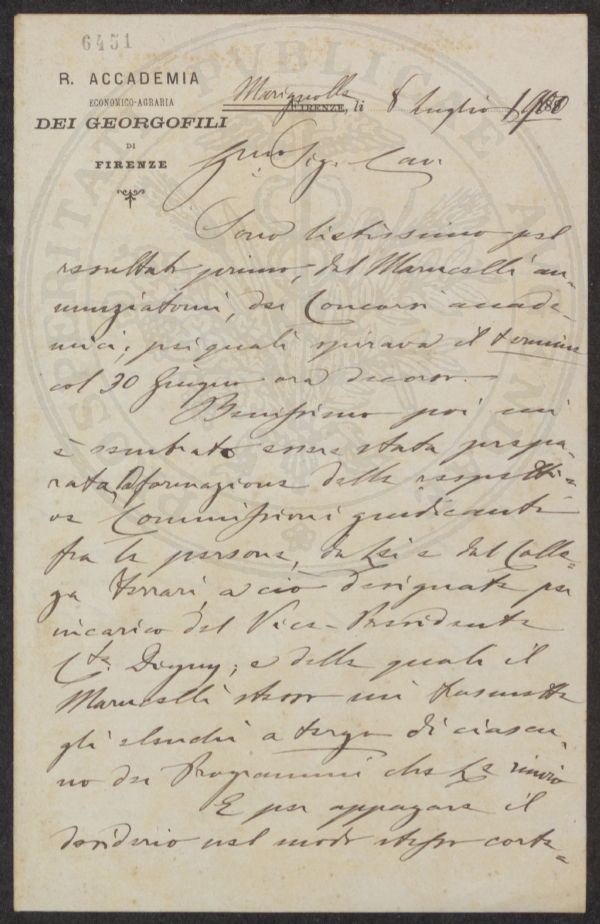 6451
R. ACCADEMIA
ECONOMICO-AGRARIA
DEI GEORGOFILI
DI
FIRENZE
Marignolle
FIRENZE, li 8 luglio 1900
Sig. Cav.
Sono lietissimo pel
resultato primo, dal Marucelli an-
nunziatomi, dei Concorsi accade-
mici; pei quali spirava il termine
col 30 Giugno ora decorso.
Benissimo poi mi
è sembrato essere stata prepa-
rata la formazione delle respetti-
ve Commissioni giudicanti
fra le persone, da Lei e dal Colle-
ga Ferrari, a ciò designate per
incarico del Vice-Presidente
Cte. Digny; e delle quali il
Marucelli stesso mi trasmette
gli elenchi a tergo di ciascu-
no dei Programmi che Le rinvio
E per appagare il
desiderio nel modo stesso corte-